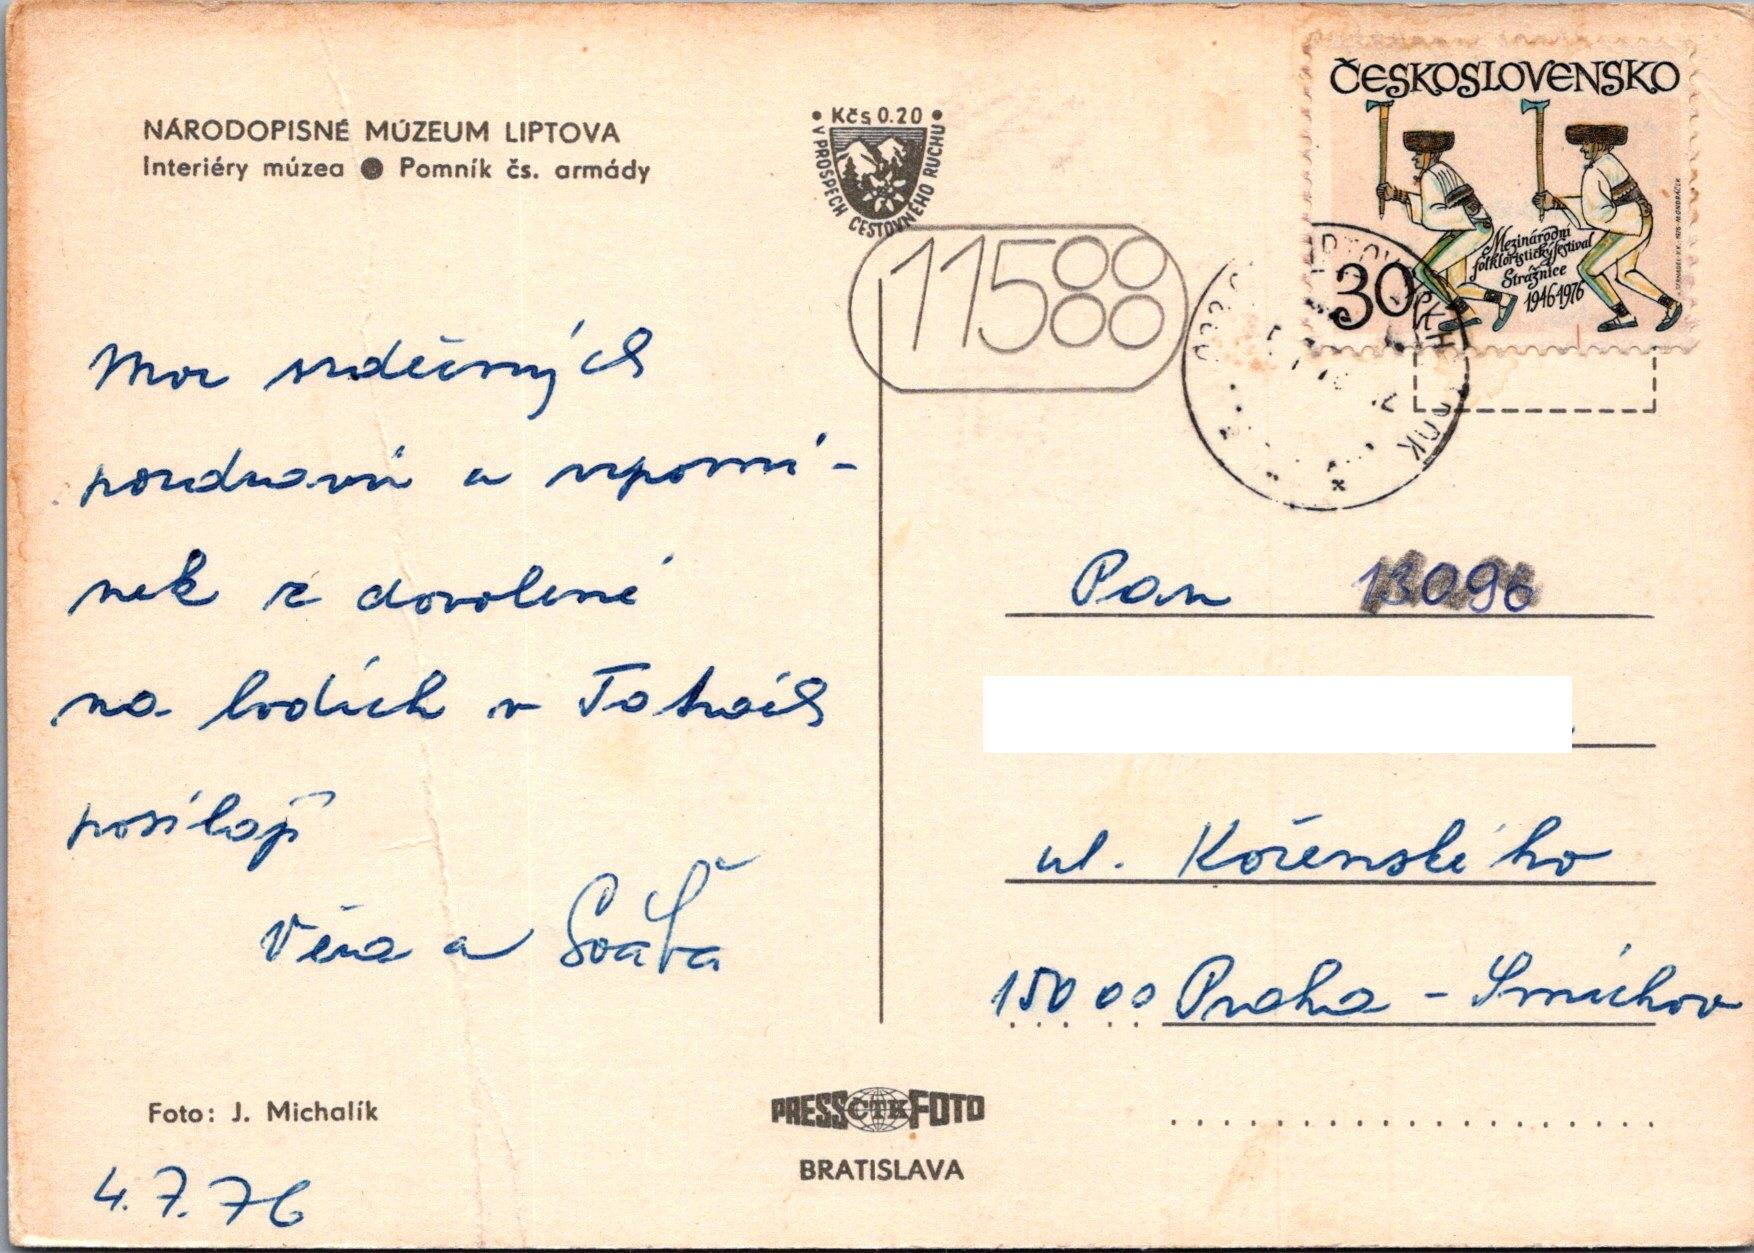 NÁRODOPISNÉ MÚZEUM LIPTOVA
Interiéry múzea ● Pomník čs. armády
• Kčs 0.20 •
V PROSPECH CESTOVNÉHO RUCHU
11500
ČESKOSLOVENSKO
Mezinárodní
folkloristický festival
Strážnice
1946 1976
30
Moc srdečných
pozdravů a vzpomí-
nek z dovolené
na lodích v Tatrách
posílají
Věra a Sváťa
Pan 13096
ul. Kořenského
150 00 Praha - Smíchov
Foto: J. Michalík
PRESS ČTK FOTO
BRATISLAVA
4.7.76